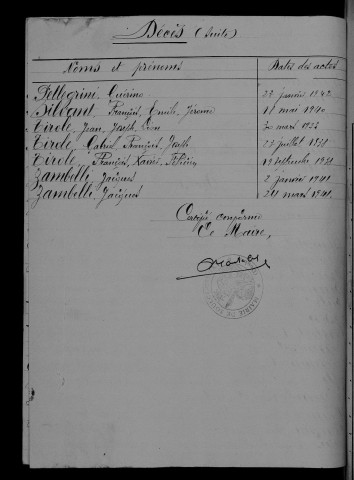 Décès (Suite)
Noms et prénoms Dates des actes
Pellegrini, Guérino 27 janvier 1942
François, Emile, Jérome 11 mai 1940
Tirole, Jean, Joseph, Léon 30 mars
Tirole, François, Joseph 23 juillet 1938
Tirole, François, Xavier, 19 septembre 1938
Zambelli, Jacques 2 janvier 1941
Zambelli, Jacques 24 mars 1941
Le Maire,